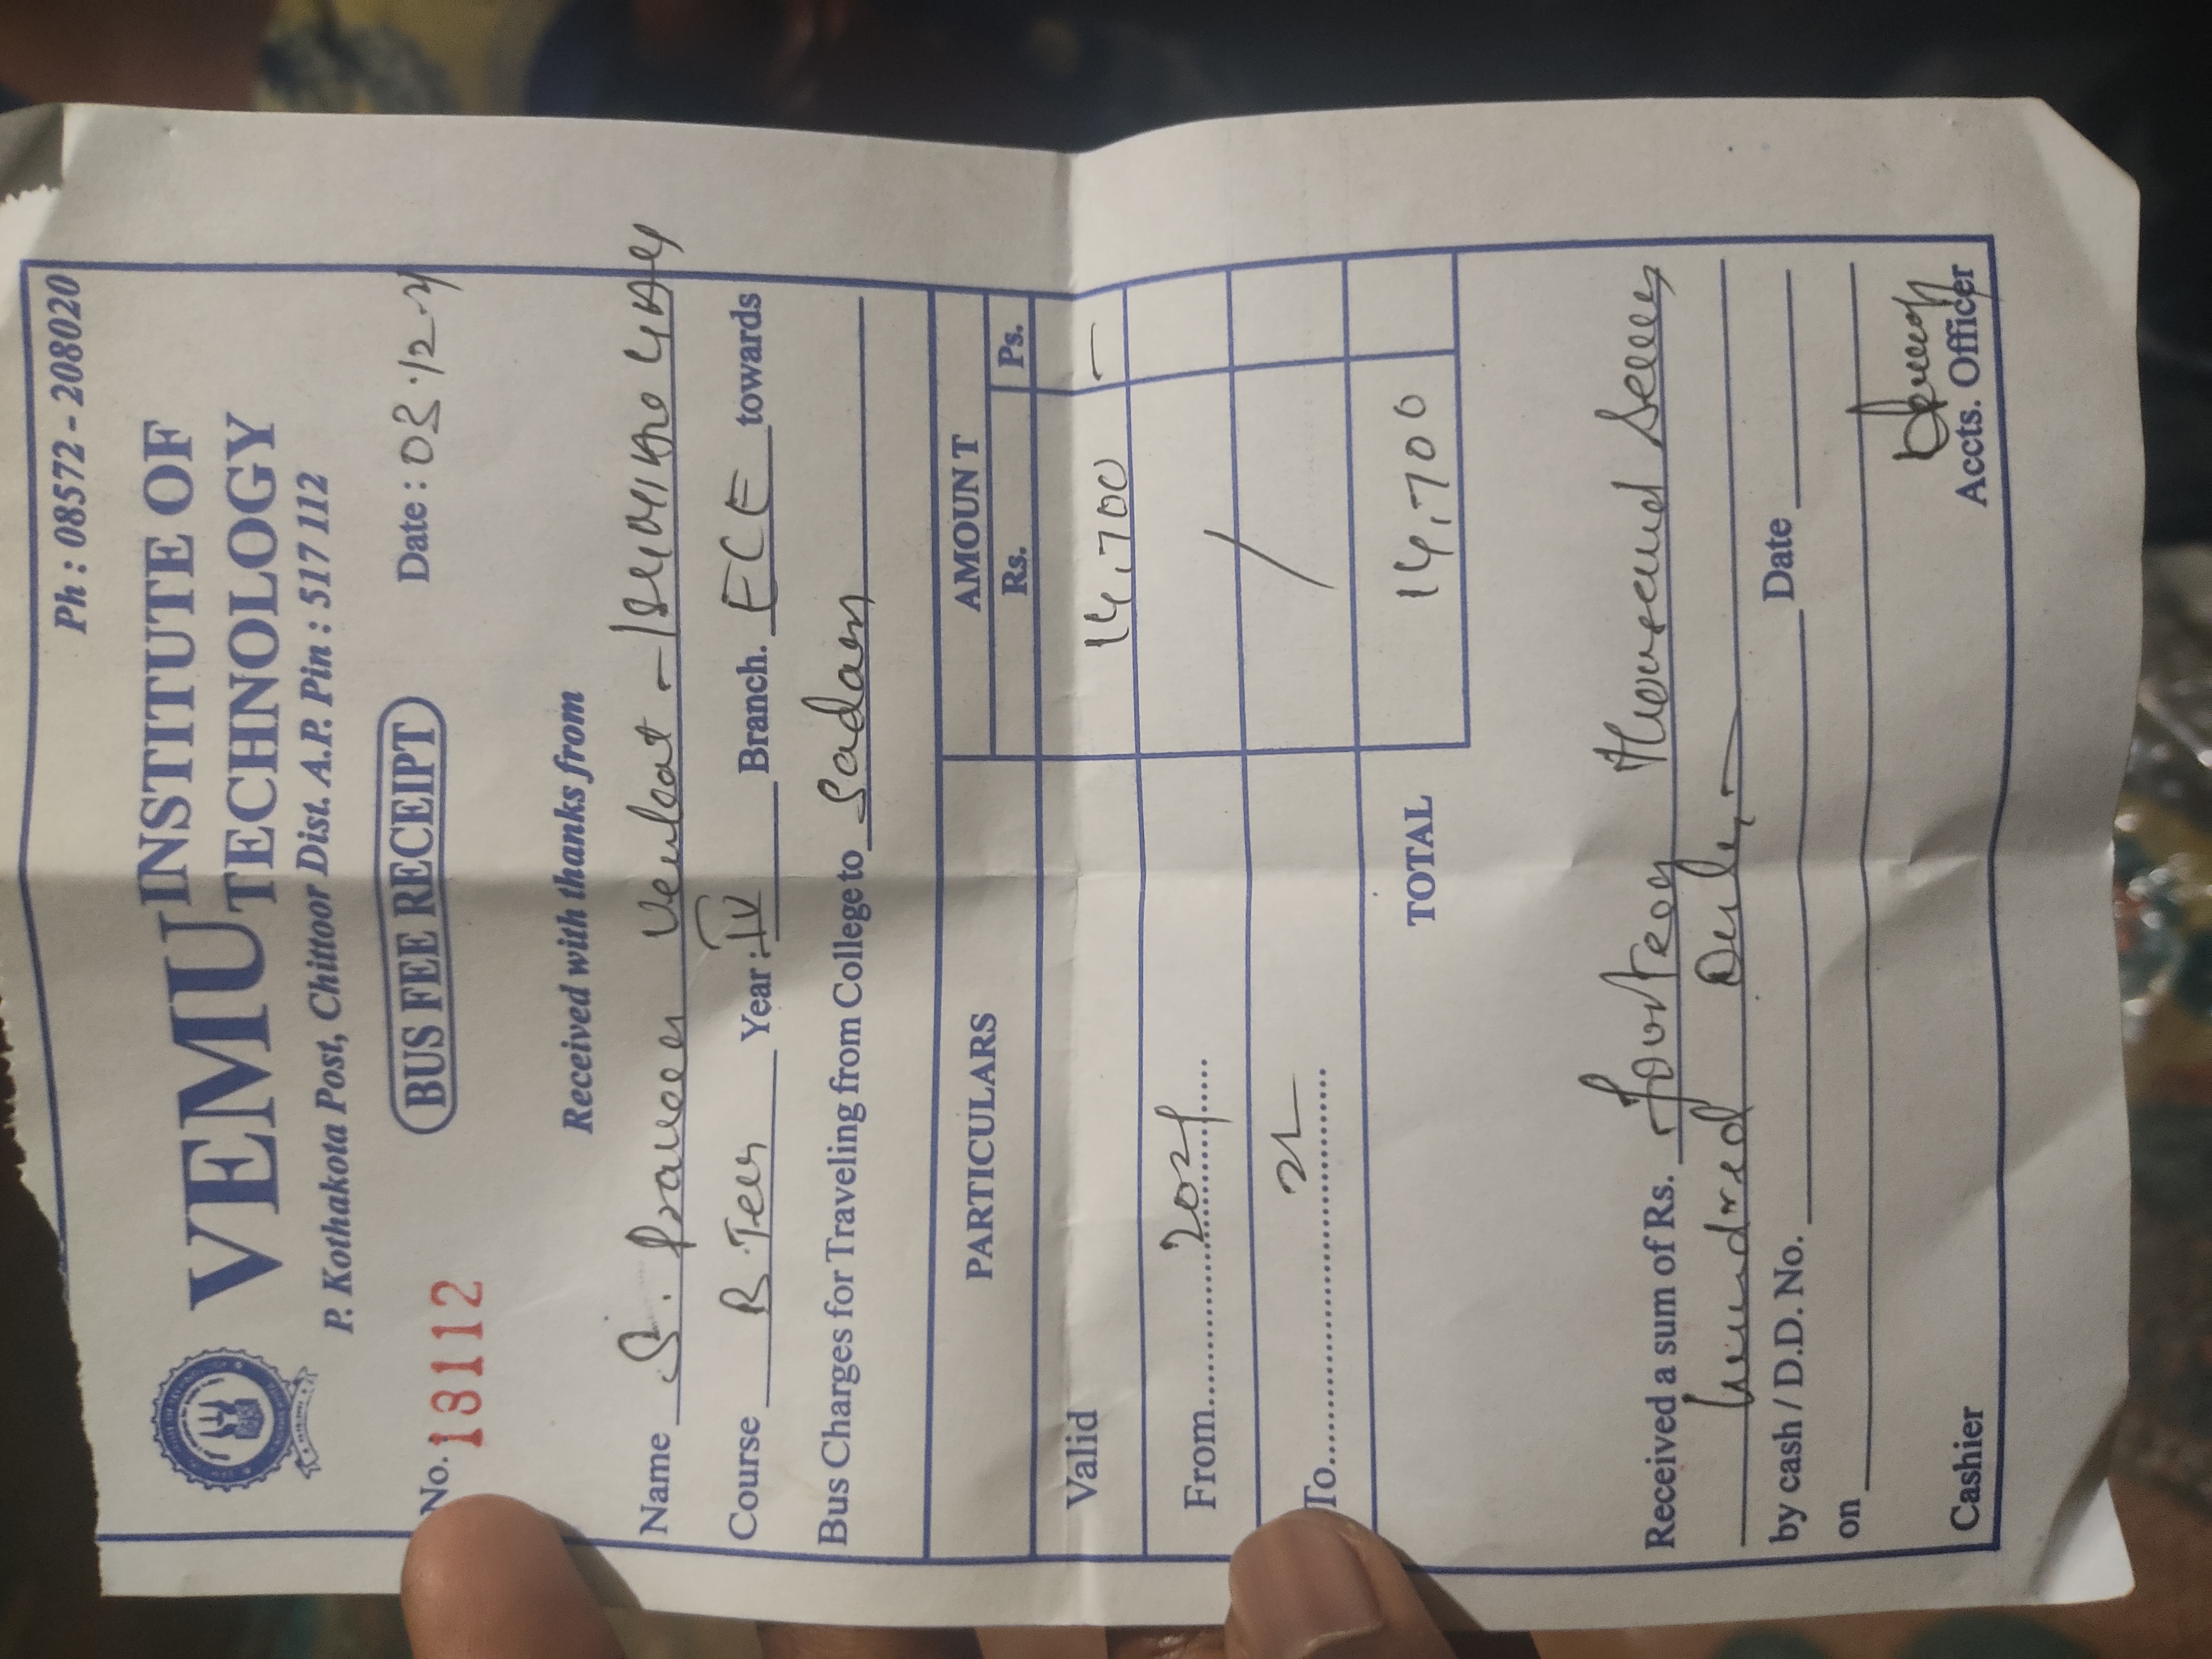 Ph : 08572 - 208020
VEMU INSTITUTE OF
TECHNOLOGY
P. Kothakota Post, Chittoor Dist. A.P. Pin : 517 112
BUS FEE RECEIPT
No. 18112 Date : 03.12.21
Received with thanks from
Name S. Praveen Venkat -
Course B.Tech Year : IV Branch. ECE towards
Bus Charges for Traveling from College to Sadam
PARTICULARS AMOUNT
Rs. Ps.
Valid 14,700 —
From 2021
To 22
TOTAL 14,700
Received a sum of Rs. Fourteen Thousand Seven
hundred Only
by cash / D.D. No. Date
on
Cashier Accts. Officer